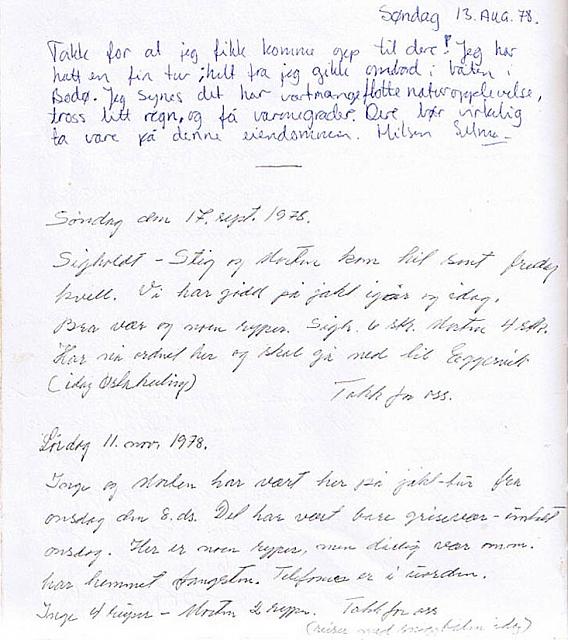 Søndag 13. AUG. 78.
Takk for at jeg fikk komme opp til dere! Jeg har
hatt en fin tur, helt fra jeg gikk ombord i båten i
Bodø. Jeg synes det har vært mange flotte naturopplevelse,
tross litt regn, og få varmegrader. Dere bør virkelig
ta vare på denne eiendommen. Hilsen Selma
Søndag den 17. sept. 1978.
Sigholdt - Stig og Morten kom hit sent fredag
kvell. Vi har gådd på jakt igår og idag.
Bra vær og noen ryper. Sigh. 6 stk. Morten 4 stk.
Har nå ordnet her og skal gå ned til
(idag Takk for oss.
Lørdag 11. nov. 1978.
Inge og Morten har vært her på jakt-tur fra
onsdag den 8. ds. Det har vært bare grisevær - untatt
onsdag. Her er noen ryper, men dårlig vær m.m.
har hemmet fangsten. Telefonen er i uorden.
Inge 4 ryper - Morten 2 ryper. Takk for oss
(reiser med idag)